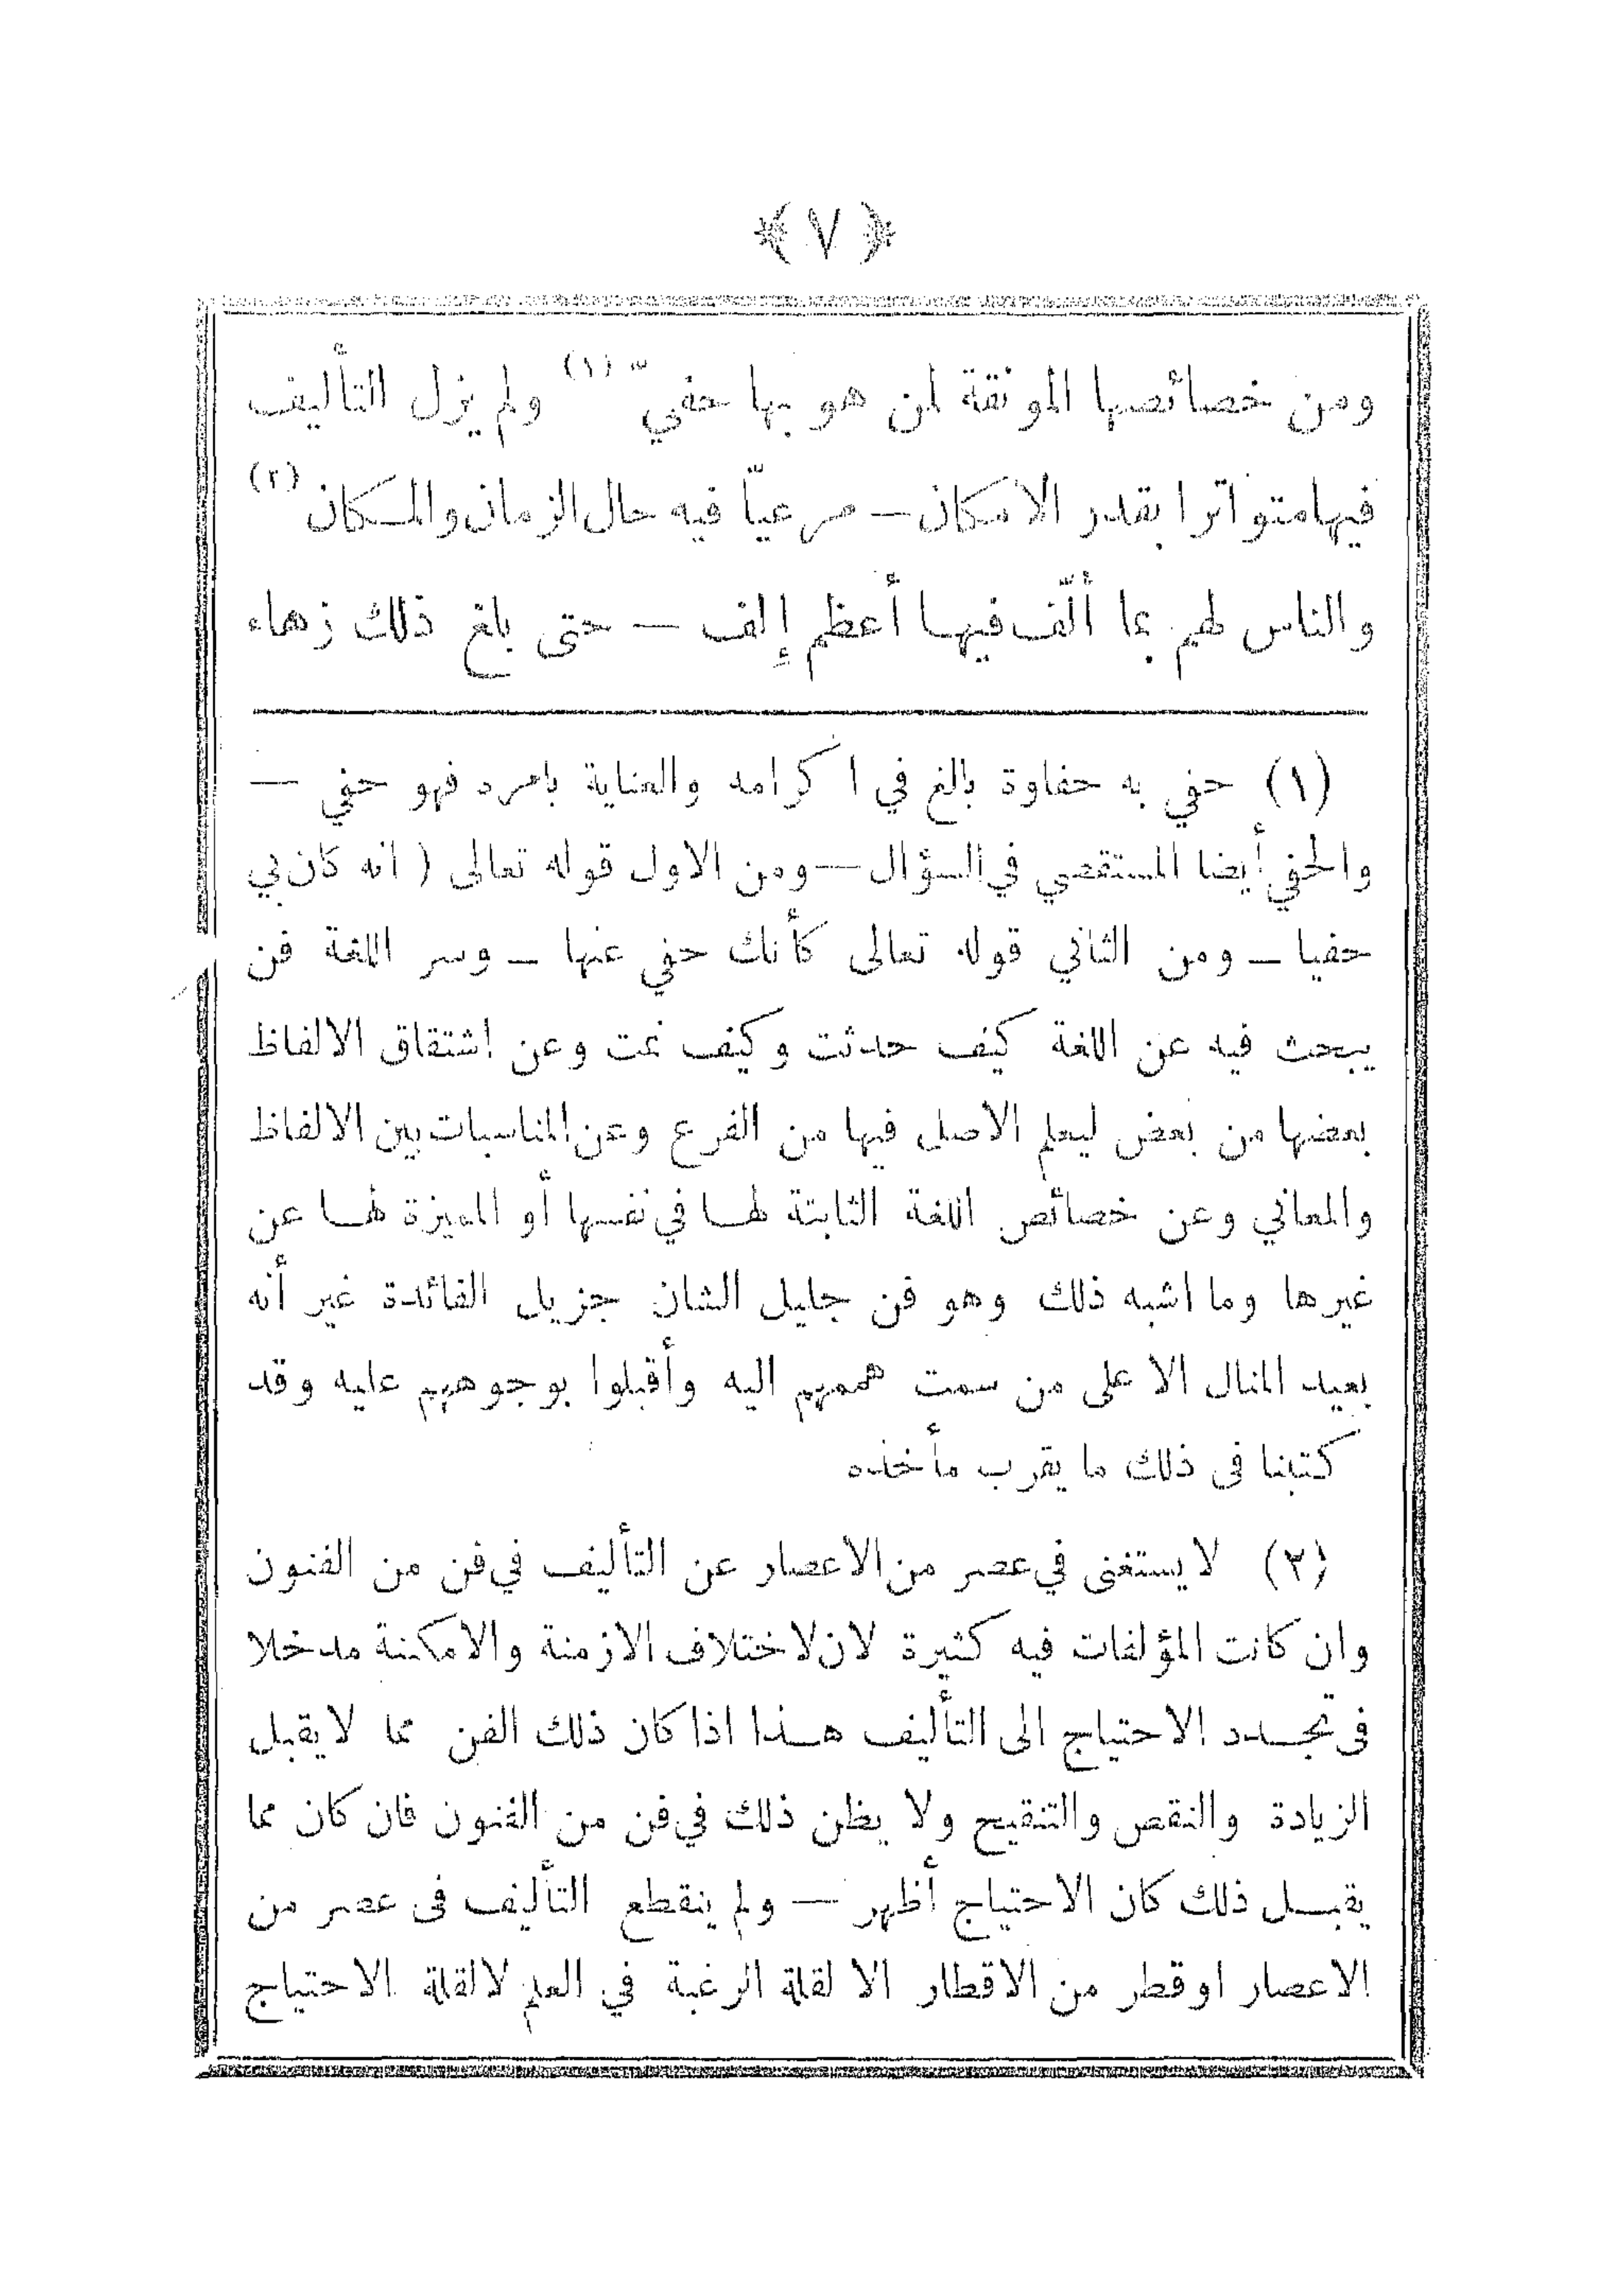 ﴿ ٧ ﴾
ومن خصائصها المونقة لمن هو بها حفيّ (١) ولم يزل التأليف
فيها متواترا بقدر الامكان — مرعيّا فيه حال الزمان والمكان (٢)
والناس لهم بما ألّف فيها أعظم إلف — حتى بلغ ذلك زهاء
(١) حفي به حفاوة بالغ في اكرامه والعناية بامره فهو حفي —
والحفي أيضا المستقصي في السؤال — ومن الاول قوله تعالى ( انه كان بي
حفيا — ومن الثاني قوله تعالى كأنك حفي عنها — وسر اللغة فن
يبحث فيه عن اللغة كيف حدثت وكيف نمت وعن اشتقاق الالفاظ
بعضها من بعض ليعلم الاصل فيها من الفرع وعن المناسبات بين الالفاظ
والمعاني وعن خصائص اللغة الثابتة لها في نفسها أو المميزة لها عن
غيرها وما اشبه ذلك وهو فن جليل الشان جزيل الفائدة غير أنه
بعيد المنال الا على من سمت هممهم اليه وأقبلوا بوجوههم عليه وقد
كتبنا فى ذلك ما يقرب مأخذه
(٢) لا يستغنى في عصر من الاعصار عن التأليف في فن من الفنون
وان كانت المؤلفات فيه كثيرة لان لاختلاف الازمنة والامكنة مدخلا
فى تجدد الاحتياج الى التأليف هذا اذا كان ذلك الفن مما لا يقبل
الزيادة والنقص والتنقيح ولا يظن ذلك في فن من الفنون فان كان مما
يقبل ذلك كان الاحتياج أظهر — ولم ينقطع التأليف فى عصر من
الاعصار او قطر من الاقطار الا لقلة الرغبة في العلم لا لقلة الاحتياج